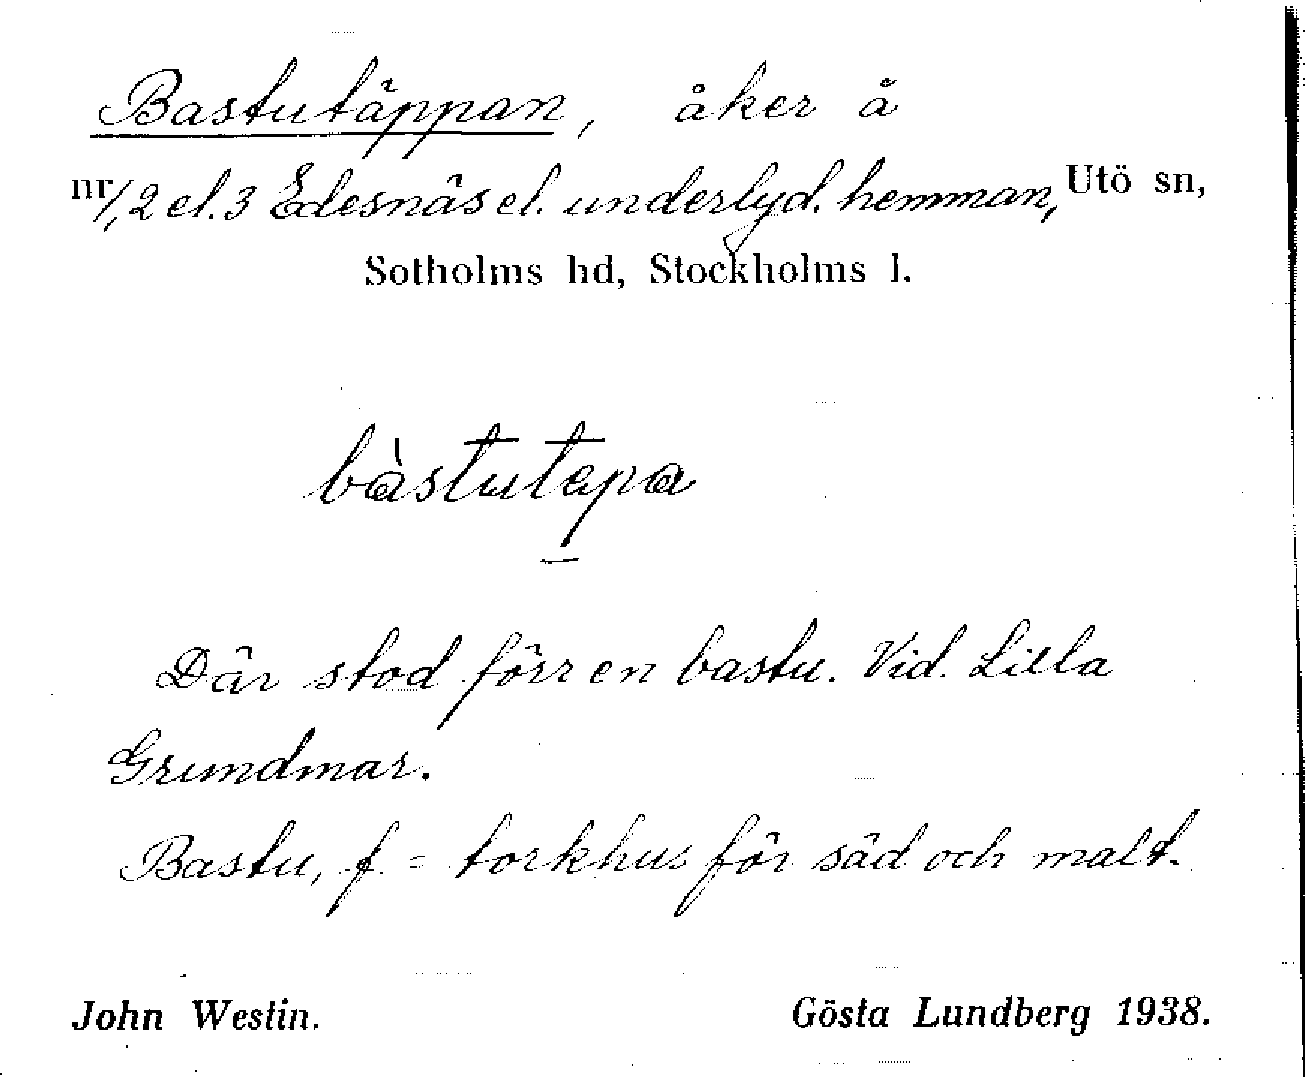 Bastutäppan, åker å
nr 1, 2 el. 3 Edesnäs el. underlyd. hemman, Utö sn,
Sotholms hd, Stockholms l.
bàstutepa
Där stod förr en bastu. Vid Lilla
Grundmar.
Bastu, f. = torkhus för säd och malt.
John Westin.
Gösta Lundberg 1938.